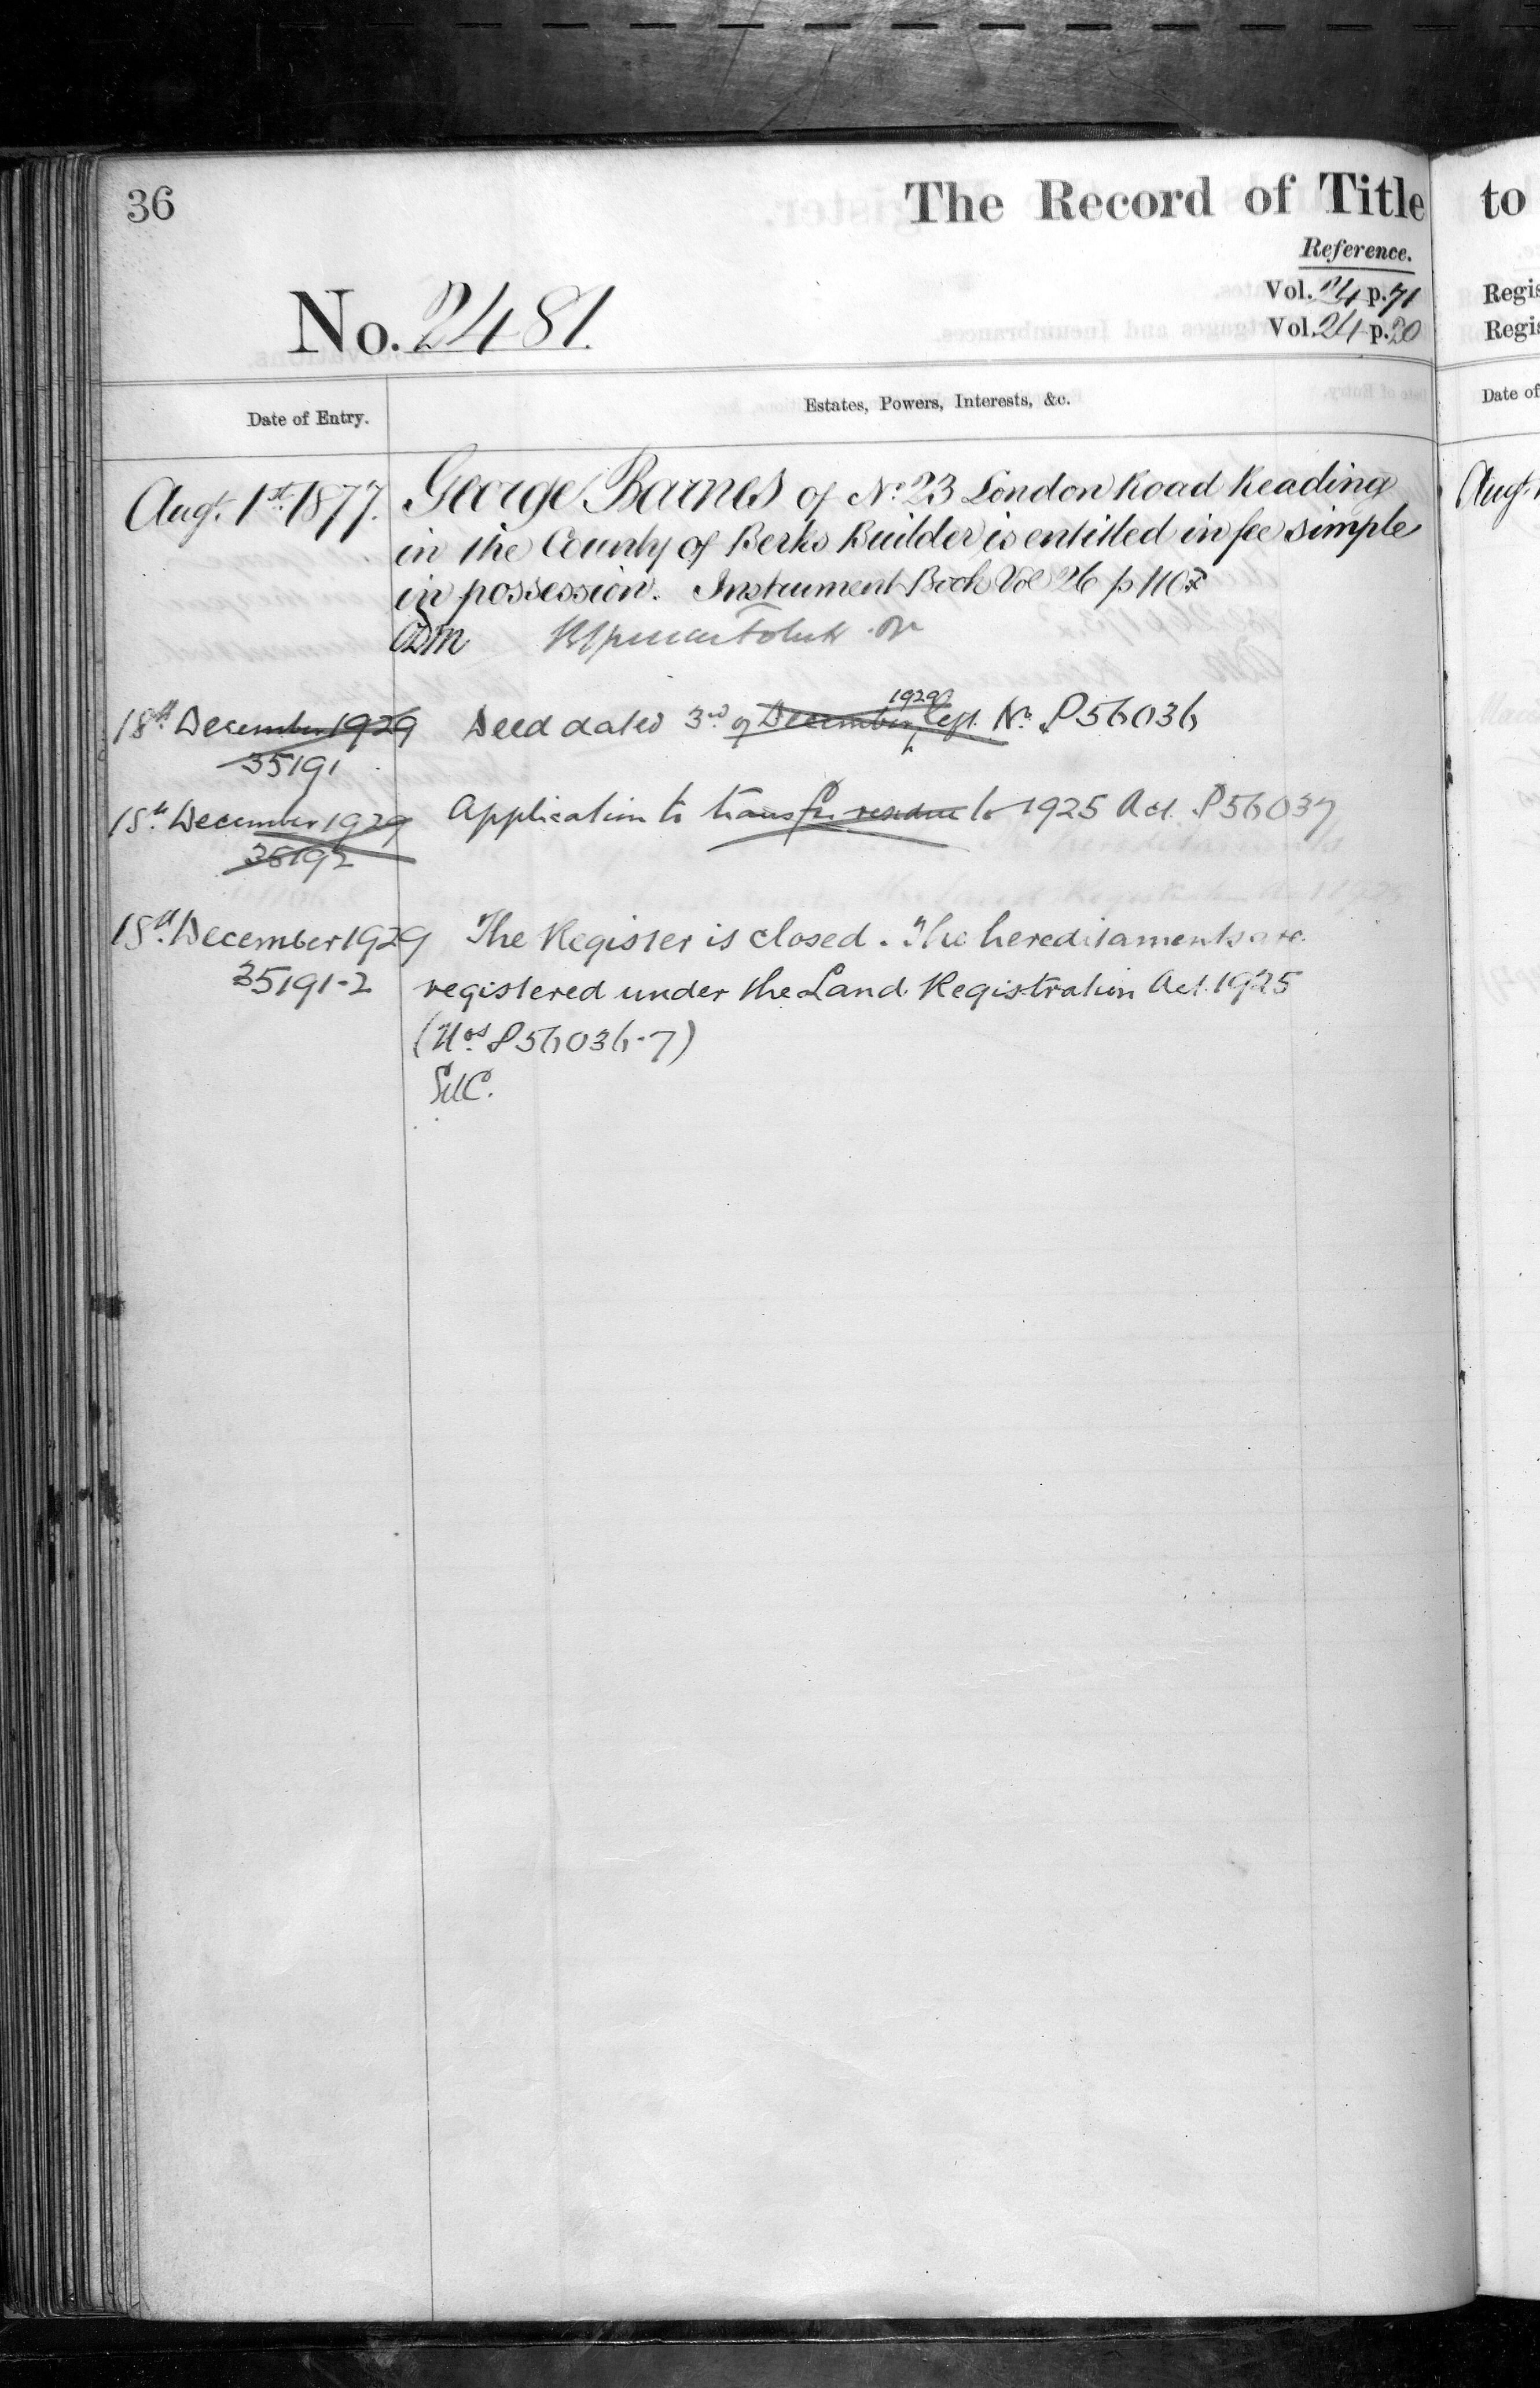 36
The Record of Title
Reference.
Vol. 24 p. 71
Vol. 24 p. 20
No. 2481.
Date of Entry.
Estates, Powers, Interests, &c.
Augt. 1st 1877.
George Barnes of No. 23 London Road Reading
in the County of Berks Builder is entitled in fee simple
in possession. Instrument Book Vol 26 p 110
18th December 1929
35191
1929
Deed dated 3rd of December Regt. No. P56036
18th December 1929
35192
Application to transfer residue to 1925 Act. P56037
18th December 1929
35191-2
The Register is closed. The hereditaments are
registered under the Land Registration Act. 1925
(Nos P56036-7)
to
Regis
Regis
Date of
Augt.